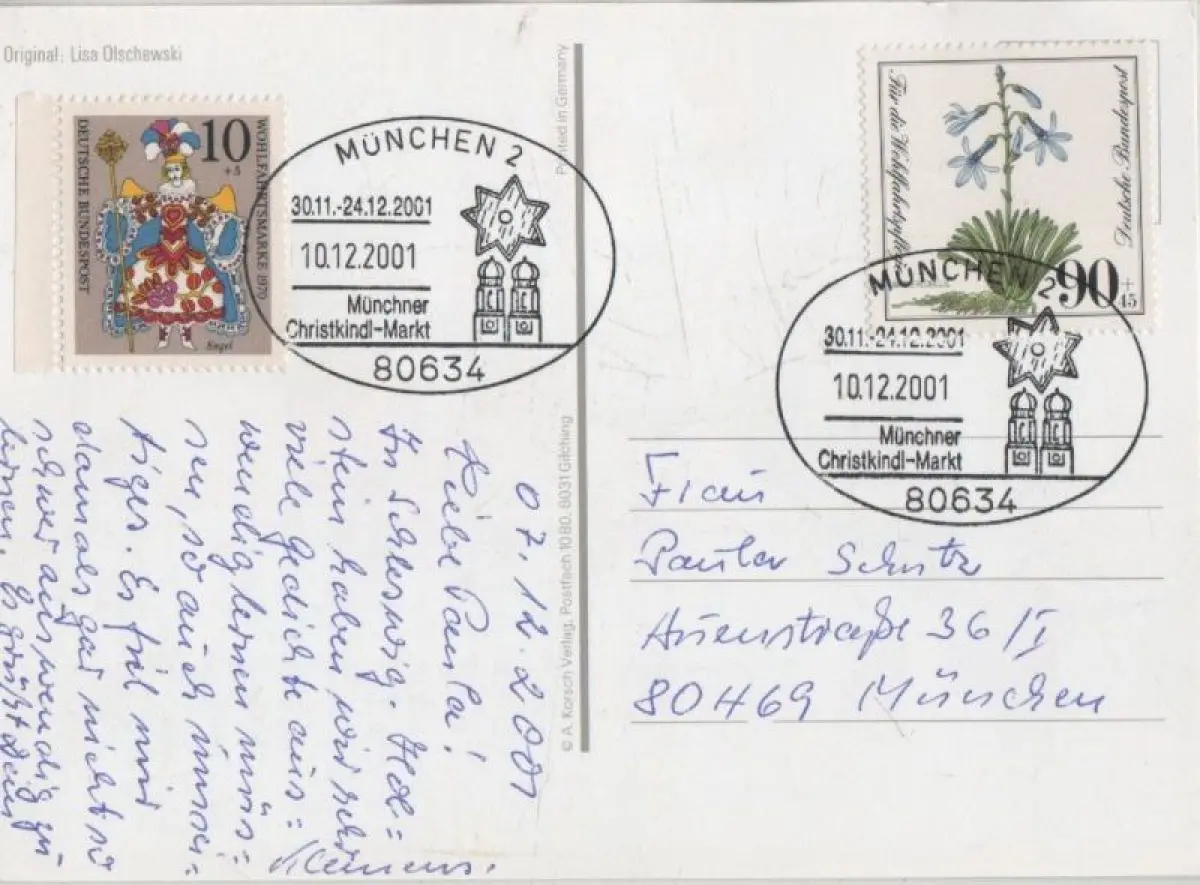 Original: Lisa Olschewski
10
+5
WOHLFAHRTSMARKE 1970
DEUTSCHE BUNDESPOST
Engel
MÜNCHEN 2
30.11.-24.12.2001
10.12.2001
Münchner
Christkindl-Markt
80634
Printed in Germany
© A. Korsch Verlag, Postfach 1080, 8031 Gilching
Für die Wohlfahrtspflege
Deutsche Bundespost
90
+
45
MÜNCHEN 2
30.11.-24.12.2001
10.12.2001
Münchner
Christkindl-Markt
80634
07.12.2001
Liebe Paula!
In Schleswig-Hol=
stein haben wir sehr
viele Gedichte aus=
wendig lernen müs=
sen, so auch
tiges. Es fiel mir
damals gar nicht so
schwer auswendig zu
lernen. Es grüßt Dein
Klemens.
Frau
Paula Schutz
Auenstraße 36/I
80469 München